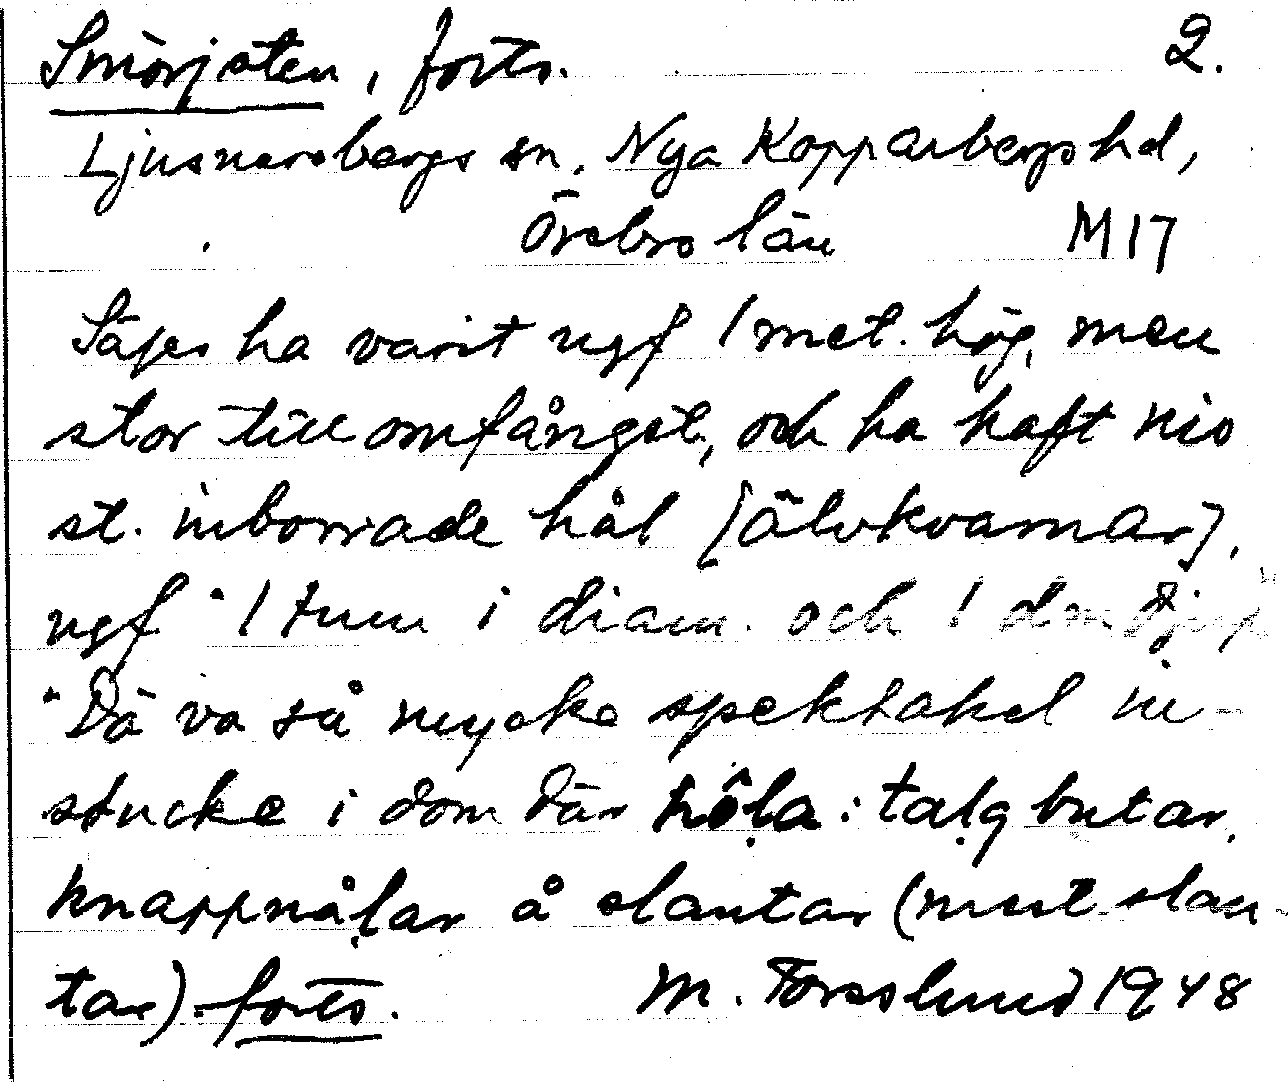 Smörjsten, forts. 2.
Ljusnarsbergs sn. Nya Kopparbergs hd,
Örebro län M 17
Säges ha varit ugf 1 met. hög, men
stor till omfånget, och ha haft nio
st. inborrade hål [älvkvarnar],
ugf 1 tum i diam. och 1 dm djup
"Dä va så mycke spektakel in-
stucke i dom där hôḷa: taḷg butar,
knappnåḷar å slantar (mest slan-
tar) forts. M. Forsslund 1948